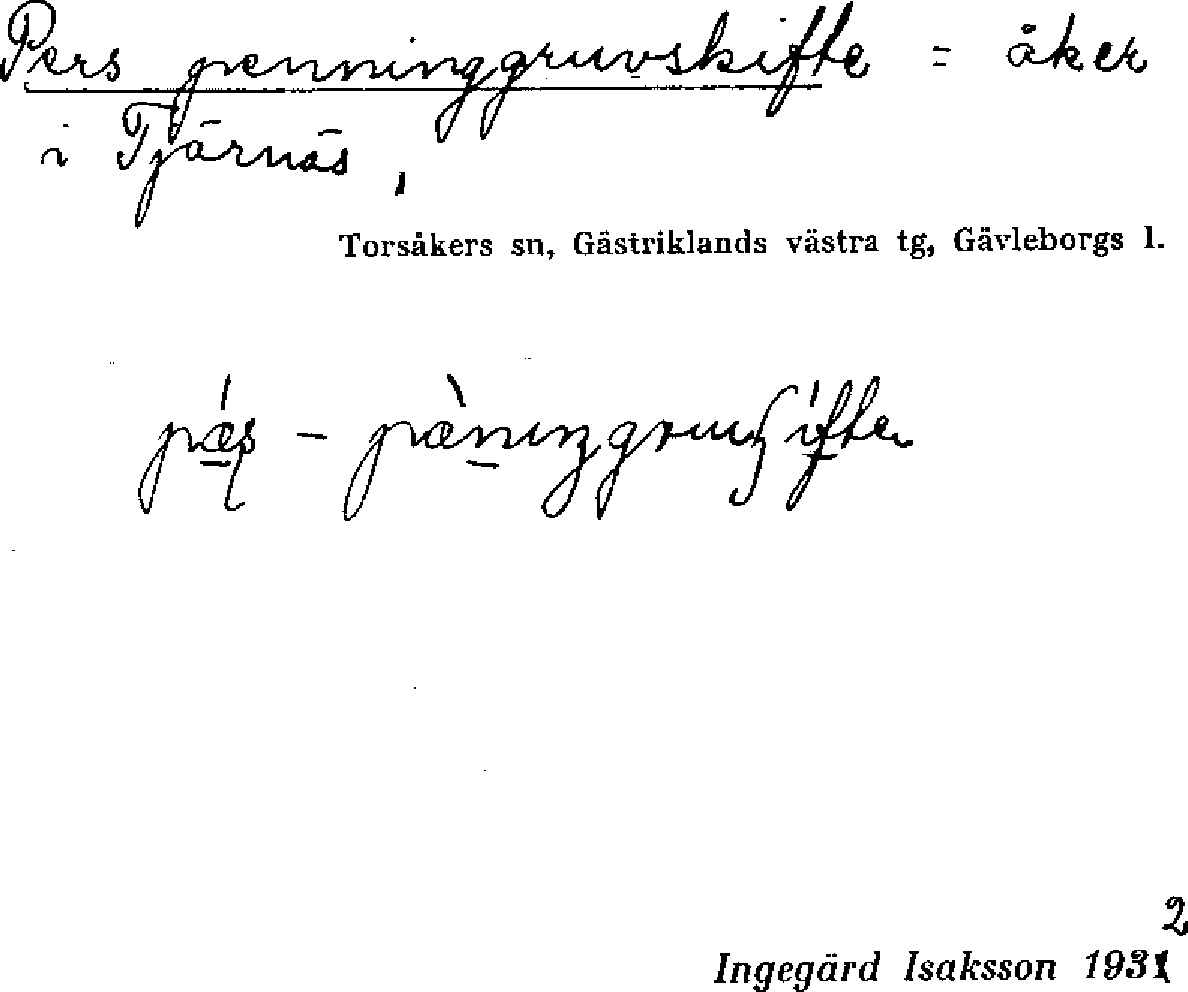 Pers penninggruvskifte = åker
i Tjärnäs,
Torsåkers sn, Gästriklands västra tg, Gävleborgs l.
2
Ingegärd Isaksson 1931